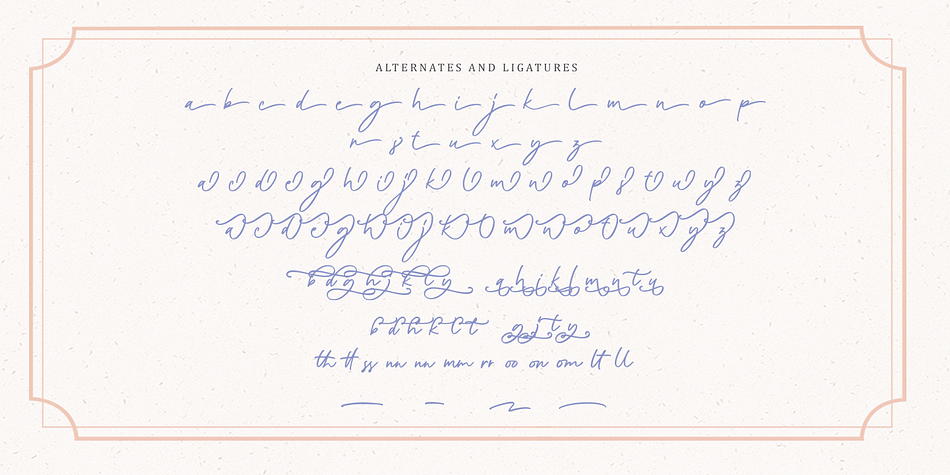 ALTERNATES AND LIGATURES
a b c d e g h i j k l m n o p
r s t u x y z
a c d e g h i j k l m n o p s t u y z
b d g h j k t y a h i k l m n t u
b d h k l t g j t y
th tt ss nn nn mm rr oo on om lt ll